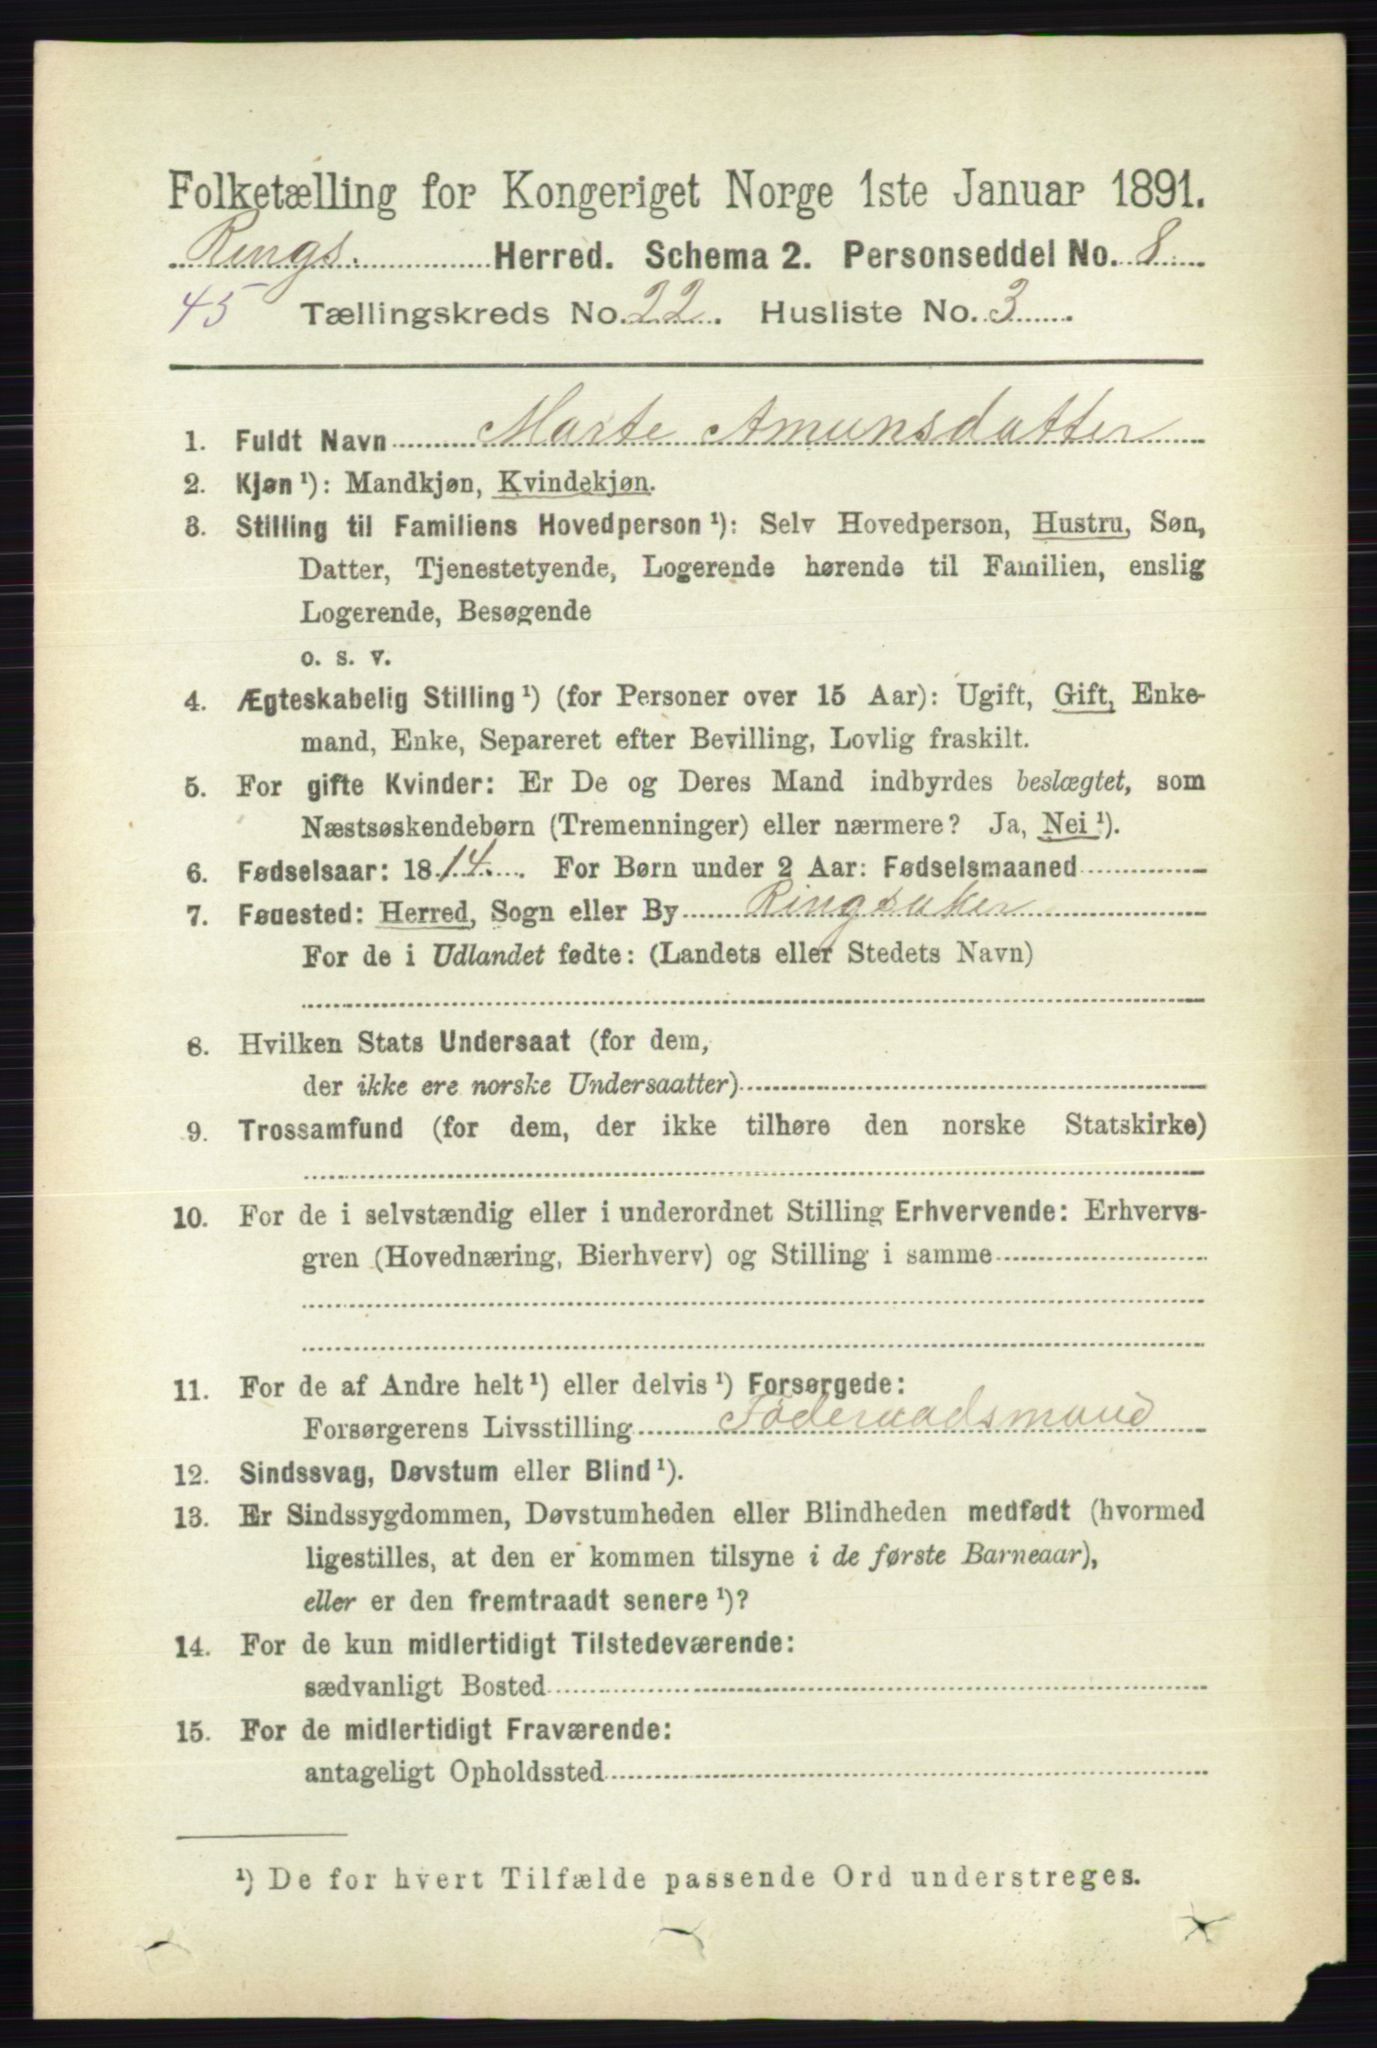 Folketælling for Kongeriget Norge 1ste Januar 1891.
Rings. Herred. Schema 2. Personseddel No. 8
45 Tællingskreds No. 22. Husliste No. 3
1. Fuldt Navn Marte Amunsdatter
2. Kjøn ¹): Mandkjøn, Kvindekjøn.
3. Stilling til Familiens Hovedperson ¹): Selv Hovedperson, Hustru, Søn,
Datter, Tjenestetyende, Logerende hørende til Familien, enslig
Logerende, Besøgende
o. s. v.
4. Ægteskabelig Stilling ¹) (for Personer over 15 Aar): Ugift, Gift, Enke-
mand, Enke, Separeret efter Bevilling, Lovlig fraskilt.
5. For gifte Kvinder: Er De og Deres Mand indbyrdes beslægtet, som
Næstsøskendebørn (Tremenninger) eller nærmere? Ja, Nei ¹).
6. Fødselsaar: 1814. For Børn under 2 Aar: Fødselsmaaned
7. Føuested: Herred, Sogn eller By Ringsaker
For de i Udlandet fødte: (Landets eller Stedets Navn)
8. Hvilken Stats Undersaat (for dem,
der ikke ere norske Undersaatter)
9. Trossamfund (for dem, der ikke tilhøre den norske Statskirke)
10. For de i selvstændig eller i underordnet Stilling Erhvervende: Erhvervs-
gren (Hovednæring, Bierhverv) og Stilling i samme
11. For de af Andre helt ¹) eller delvis ¹) Forsørgede:
Forsørgerens Livsstilling Föderaadsmand
12. Sindssvag, Døvstum eller Blind ¹).
13. Er Sindssygdommen, Døvstumheden eller Blindheden medfødt (hvormed
ligestilles, at den er kommen tilsyne i de første Barneaar),
eller er den fremtraadt senere ¹)?
14. For de kun midlertidigt Tilstedeværende:
sædvanligt Bosted
15. For de midlertidigt Fraværende:
antageligt Opholdssted
¹) De for hvert Tilfælde passende Ord understreges.